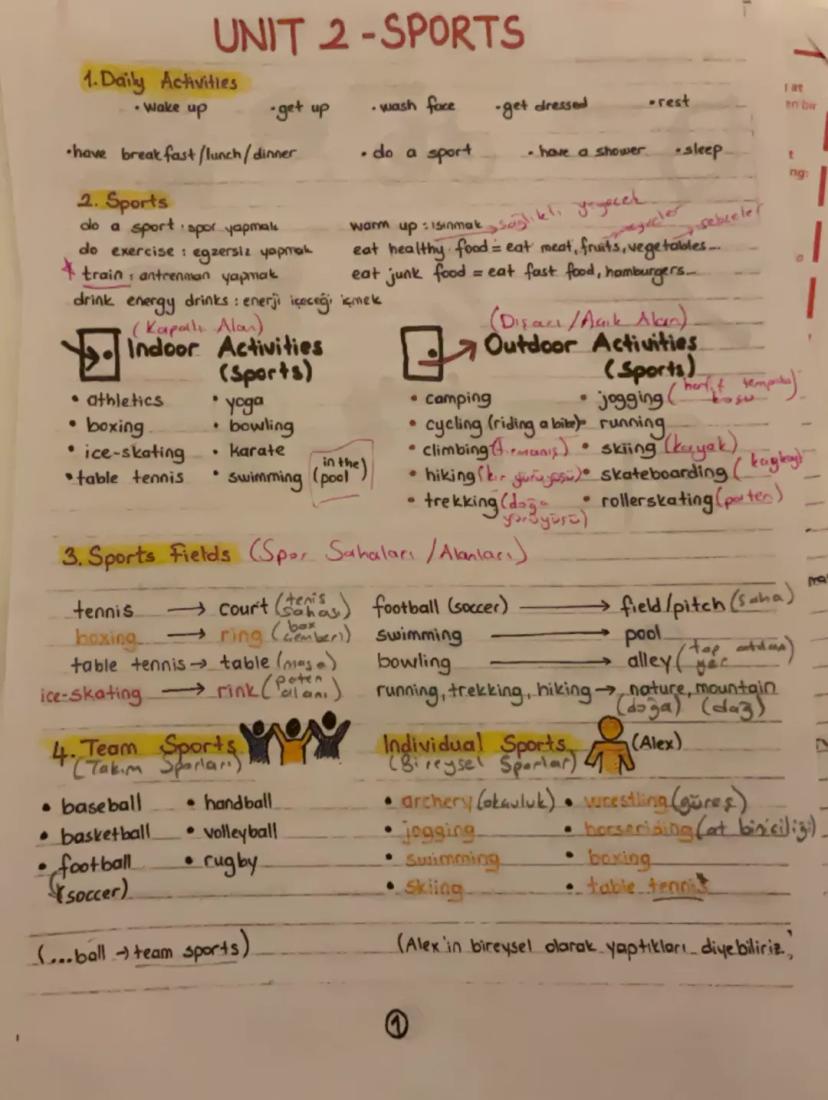 UNIT 2 - SPORTS
1. Daily Activities
• wake up • get up • wash face • get dressed • rest
• have breakfast/lunch/dinner • do a sport • have a shower • sleep
2. Sports
do a sport : spor yapmak warm up : ısınmak sağlıklı yiyecek
do exercise : egzersiz yapmak eat healthy food = eat meat, fruits, vegetables... meyveler sebzeler
* train : antrenman yapmak eat junk food = eat fast food, hamburgers...
drink energy drinks : enerji içeceği içmek
(Kapalı Alan) (Dışarı / Açık Alan)
Indoor Activities (Sports) Outdoor Activities (Sports)
• athletics • yoga • camping • jogging (hafif tempolu koşu)
• boxing • bowling • cycling (riding a bike) • running
• ice-skating • karate • climbing (tırmanış) • skiing (kayak)
• table tennis • swimming (in the pool) • hiking (kır yürüyüşü) • skateboarding (kaykay)
• trekking (doğa yürüyüşü) • rollerskating (paten)
3. Sports Fields (Spor Sahaları / Alanları)
tennis → court (tenis sahası) football (soccer) → field/pitch (saha)
boxing → ring (box çemberi) swimming → pool
table tennis → table (masa) bowling → alley (top yer)
ice-skating → rink (paten alanı) running, trekking, hiking → nature, mountain
(doğa) (dağ)
4. Team Sports Individual Sports (Alex)
(Takım Sporları) (Bireysel Sporlar)
• baseball • handball • archery (okçuluk) • wrestling (güreş)
• basketball • volleyball • jogging • horseriding (at biniciliği)
• football • rugby • swimming • boxing
(soccer) • skiing • table tennis
(...ball → team sports) (Alex'in bireysel olarak yaptıkları diyebiliriz)
1